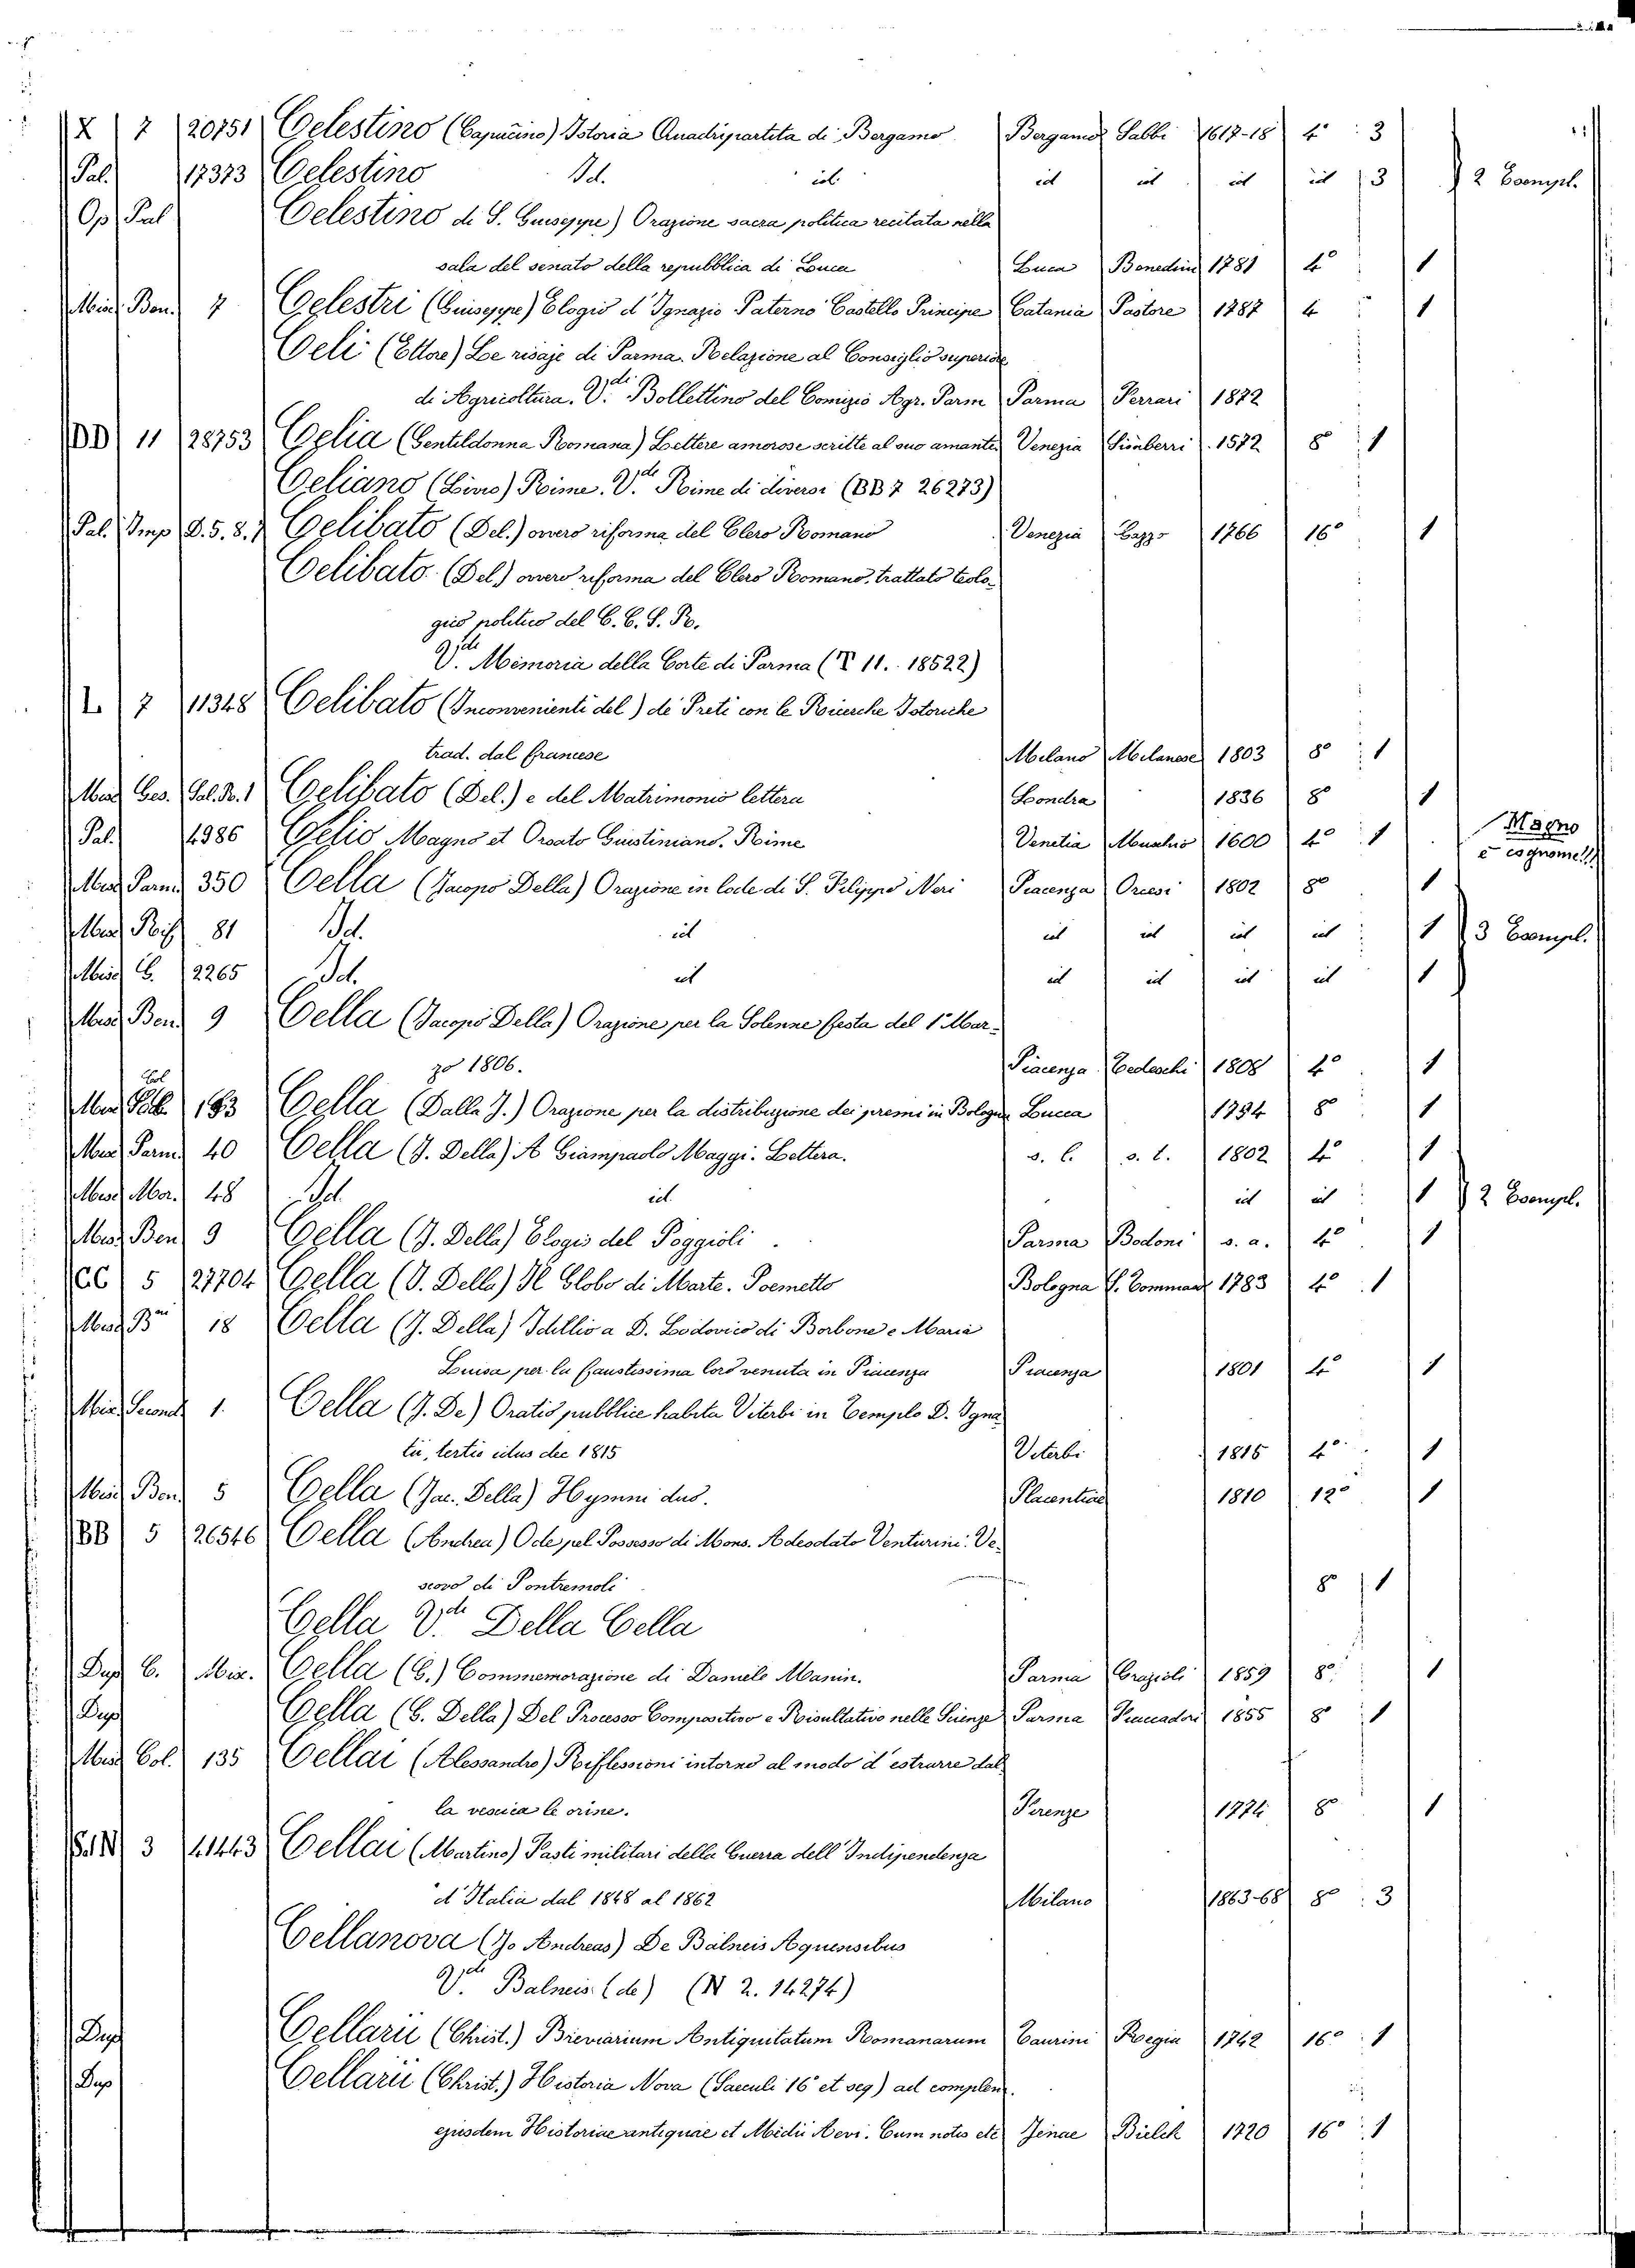 X 7 20751 Celestino (Capucino) Istoria Quadripartita di Bergamo Bergamo Valli 1617-18 4° 3
Pal. 17373 Celestino Id. id. id id id id 3 2 Esempl.
Op. Pal Celestino di S. Giuseppe) Orazione sacra politica recitata nella
sala del senato della repubblica di Lucca Lucca Benedini 1781 4° 1
Misc. Ben. 7 Celestri (Giuseppe) Elogio d'Ignazio Paterno Castello Principe Catania Pastore 1787 4 1
Celi (Ettore) Le risaje di Parma. Relazione al Consiglio superiore
di Agricoltura. V.di Bollettino del Comizio Agr. Parm Parma Ferrari 1872
DD 11 28753 Celia (Gentildonna Romana) Lettere amorose scritte al suo amante Venezia 1572 8° 1
Celiano (Livio) Rime. V.di Rime di diversi (BB 7 26273)
Pal. Imp D.5.8. Celibato (Del.) ovvero riforma del Clero Romano Venezia 1766 16° 1
Celibato. (Del) ovvero riforma del Clero Romano, trattato teolo-
gico politico del C. C. S. R.
V.di Memoria della Corte di Parma (T 11. 18522)
L 7 11348 Celibato (Inconvenienti del) de Preti con le Ricerche Istoriche
trad. dal francese Milano Milanese 1803 8° 1
Misc Ges. Pal. R. 1 Celibato (Del.) e del Matrimonio lettera Londra 1836 8° 1
Pal. 4986 Celio Magno et Orsato Giustiniano. Rime Venetia Muschio 1600 4° 1 Magno
è cognome!!!
Misc Parm 350 Cella (Jacopo Della) Orazione in lode di S. Filippo Neri Piacenza Orcesi 1802 8° 1
Misc Rif 81 Id. id id id id id 1 3 Esempl.
Misc C. 2265 Id. id id id id id 1
Misc Ben 9 Cella (Jacopo Della) Orazione per la Solenne festa del 1° Mar-
zo 1806. Piacenza Tedeschi 1808 4° 1
Col
Misc 183 Cella (Dalla J.) Orazione per la distribuzione dei premi in Bologna Lucca 1784 8° 1
Misc Parm 40 Cella (J. Della) A Giampaolo Maggi. Lettera. s. l. s. t. 1802 4° 1
Misc Mor. 48 Id id. id id 1 2 Esempl.
Misc Ben 9 Cella (J. Della) Elogio del Poggioli Parma Bodoni s. a. 4° 1
CC 5 27704 Cella (J. Della) Il Globo di Marte. Poemetto Bologna S. Tommaso 1783 4° 1
Misc 18 Cella (J. Della) Idillio a D. Lodovico di Borbone e Maria
Luisa per la faustissima loro venuta in Piacenza Piacenza 1801 4° 1
Misc Second 1. Cella (J. De) Oratio pubblice habita Viterbi in Templo D. Igna-
tii, tertio idus dec 1815 Viterbi 1816 4° 1
Misc Ben 5 Cella (Jac. Della) Hymni duo. Placentiae 1810 12° 1
BB 5 26546 Cella (Andrea) Ode pel Possesso di Mons. Adeodato Venturini. Ve-
scovo di Pontremoli 8° 1
Cella V.di Della Cella
Dup C. Mix. Cella (C.) Commemorazione di Daniele Manin. Parma Grazioli 1859 8° 1
Dup Cella (C. Della) Del Processo Compositivo e Risultativo nelle Scienze Parma Fiaccadori 1855 8° 1
Misc Col. 135 Cellai (Alessandro) Riflessioni intorno al modo d'estrarre dal-
la vescica le orine. Firenze 1774 8° 1
S.IN 3 41443 Cellai (Martino) Fasti militari della Guerra dell'Indipendenza
d'Italia dal 1848 al 1862 Milano 1863-68 8° 3
Cellanova (Jo Andreas) De Balneis Aquensibus
V.di Balneis (de) (N 2. 14274)
Dup Cellarii (Christ.) Breviarium Antiquitatum Romanarum Taurini Regia 1742 16° 1
Dup Cellarii (Christ.) Historia Nova (Saeculi 16° et seg) ad complem.
ejusdem Historiae antiquae et Medii Aevi. Cum notis etc Jenae Bielck 1720 16° 1